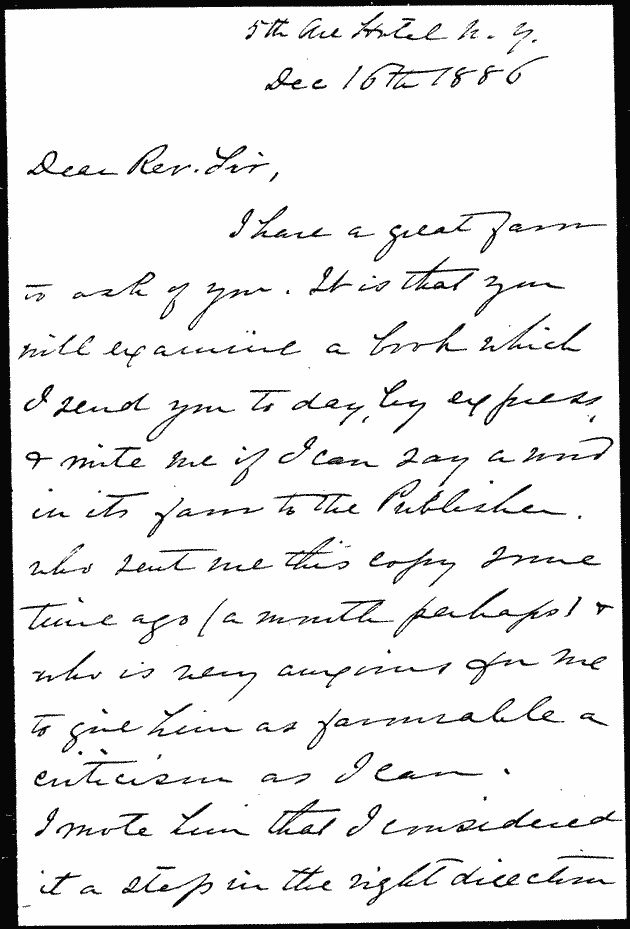 5th Ave Hotel N. Y.
Dec 16th 1886
Dear Rev. Sir,
I have a great favor
to ask of you. It is that you
will examine a book which
I send you to day, by express,
& write me if I can say a word
in its favor to the Publisher.
who sent me this copy some
time ago (a month perhaps) &
who is very anxious for me
to give him as favourable a
criticism as I can.
I wrote him that I considered
it a step in the right direction